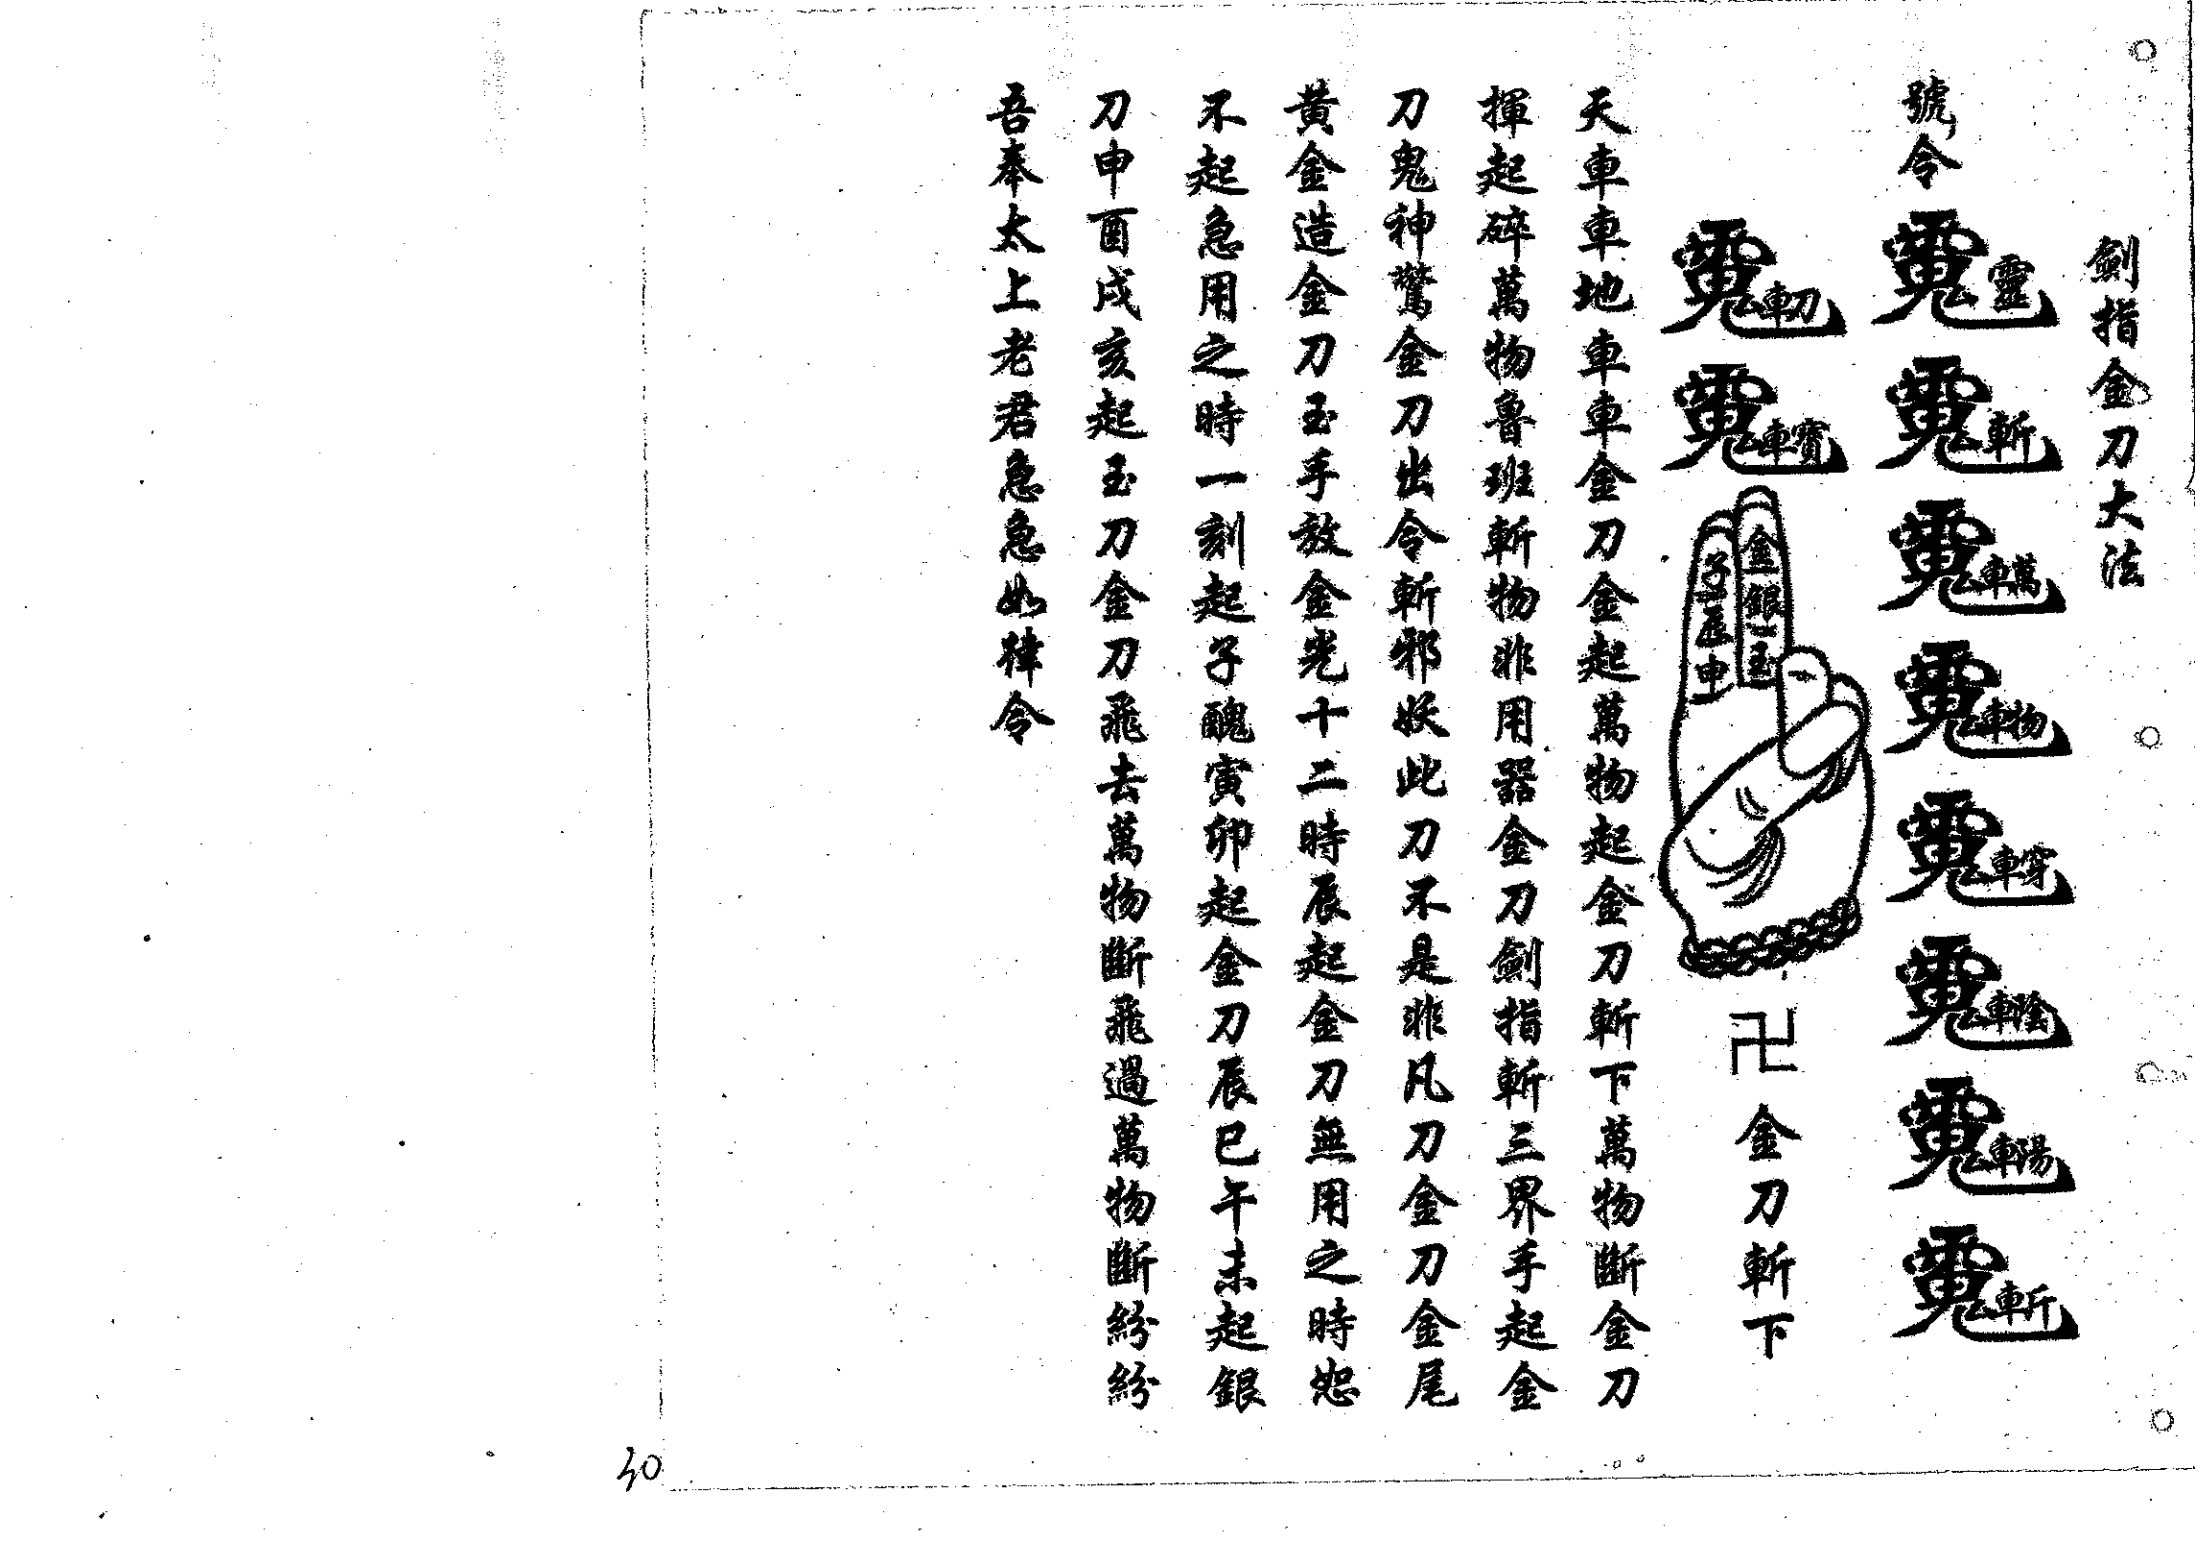 劍指金刀大法
號令
靈
斬
車萬
車物
車穿
車陰
車陽
車斤
車刀
車寶
金銀玉
子辰申
卍金刀斬下
天車車地車車金刀金起萬物起金刀斬下萬物斷金刀
揮起碎萬物魯班斬物非用器金刀劍指斬三界手起金
刀鬼神驚金刀出令斬邪妖此刀不是非凡刀金刀金尾
黃金造金刀玉手放金光十二時辰起金刀無用之時恕
不起急用之時一刻起子醜寅卯起金刀辰巳午未起銀
刀申酉戌亥起玉刀金刀飛去萬物斷飛過萬物斷紛紛
吾奉太上老君急急如律令
40